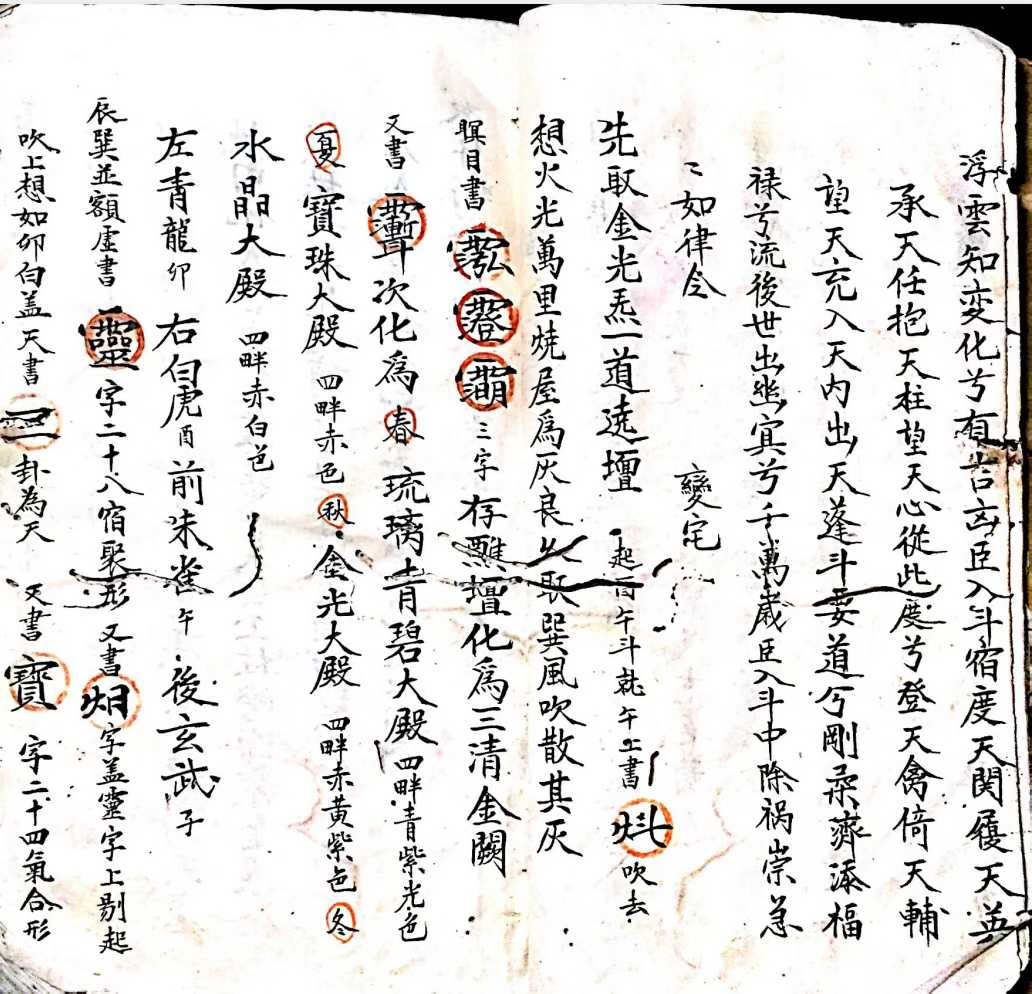 浮雲知変化兮有吉凶臣入斗宿度天関履天英
承天任抱天柱望天心從此度兮登天禽倚天輔
望天充入天内出天蓬斗要道兮剛柔濟添福
禄兮流後世出幽冥兮千萬歲臣入斗中除祸祟急
〻如律令 變宅
先取金光炁一道遶壇 起百午斗就午上書 吹去
想火光萬里焼屋爲灰良久取巽風吹散其灰
瞑目書 三字 存醮壇化爲三清金闕
又書 次化爲 春 琉璃青碧大殿 四畔青紫光色
夏 寶珠大殿 四畔赤色 秋 金光大殿 四畔赤黄紫色 冬
水晶大殿 四畔赤白色
左青龍 卯 右白虎 酉 前朱雀 午 後玄武 子
辰巽並額虚書 靈 字二十八宿聚形 又書 字盖靈字上剔起
吹上想如卯白盖天書 卦為天 又書 寶 字二十四氣合形